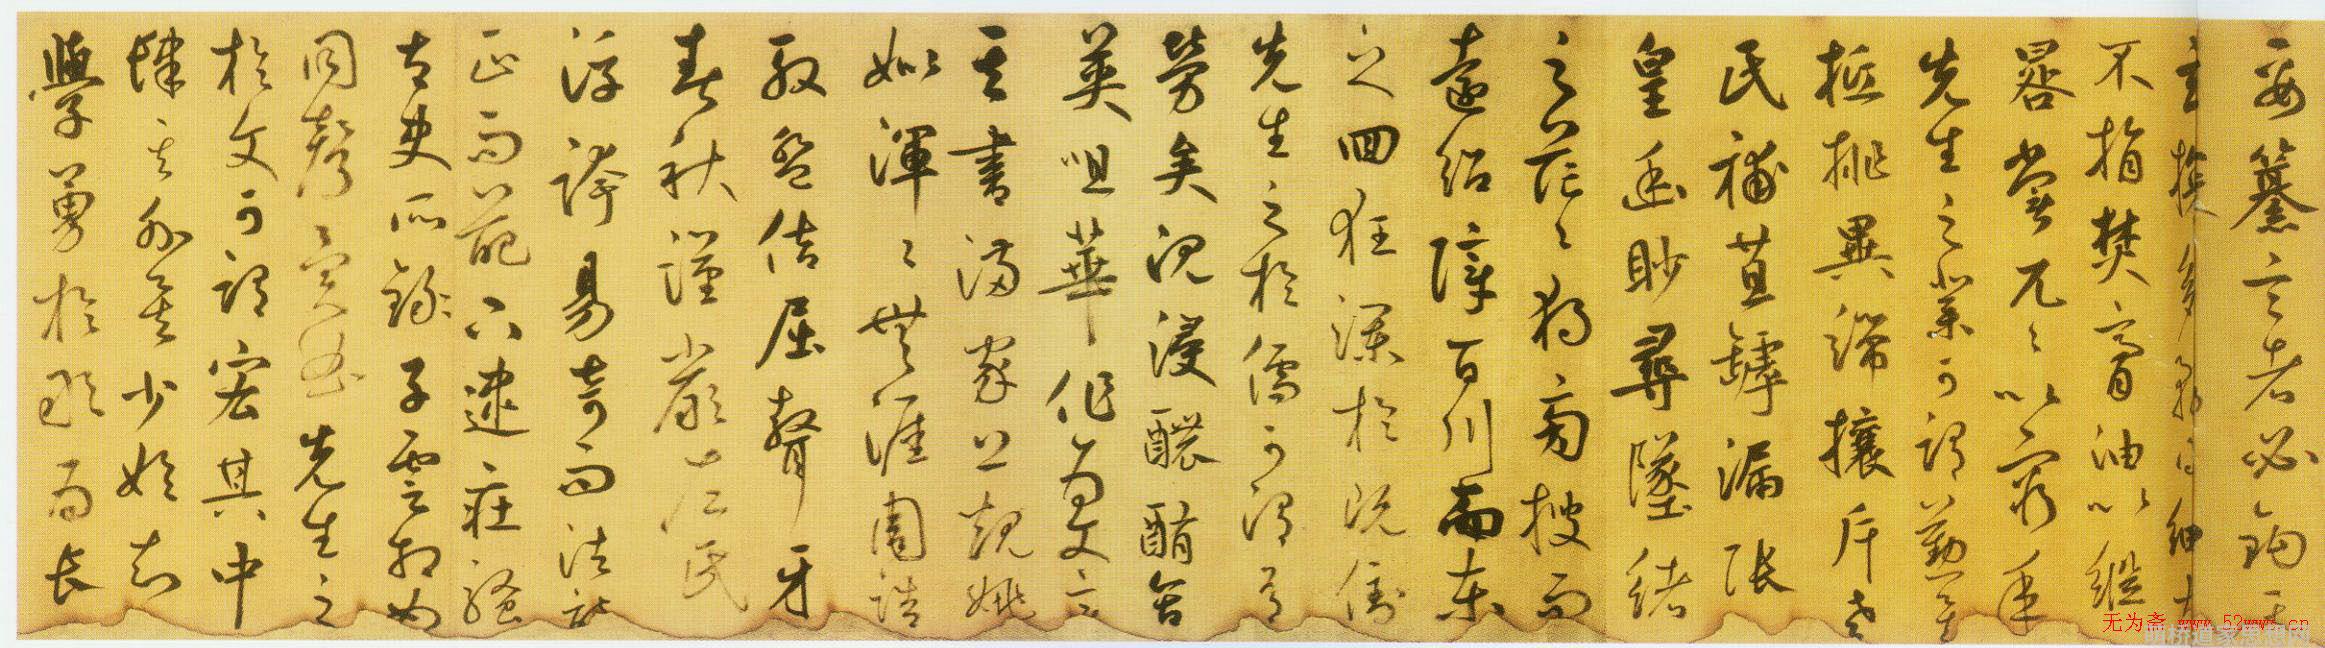 要纂言者必鉤其
玄貪多務得細大
不捐焚膏油以繼
晷常兀兀以窮年
先生之業可謂勤矣
抵排異端攘斥老
氏補苴罅漏張
皇幽眇尋墜緒
之茫茫獨旁搜而
遠紹障百川而東
之回狂瀾於既倒
先生之於儒可謂有
勞矣沉浸醲郁含
英咀華作為文章
其書滿家上規姚
姒渾渾無涯周誥
殷盤佶屈聱牙
春秋謹嚴左氏
浮誇易奇而法詩
正而葩下逮莊騷
太史所錄子雲相如
同聲異曲先生之
於文可謂宏其中
肆其外矣少始知
學勇於敢為長
无为斋